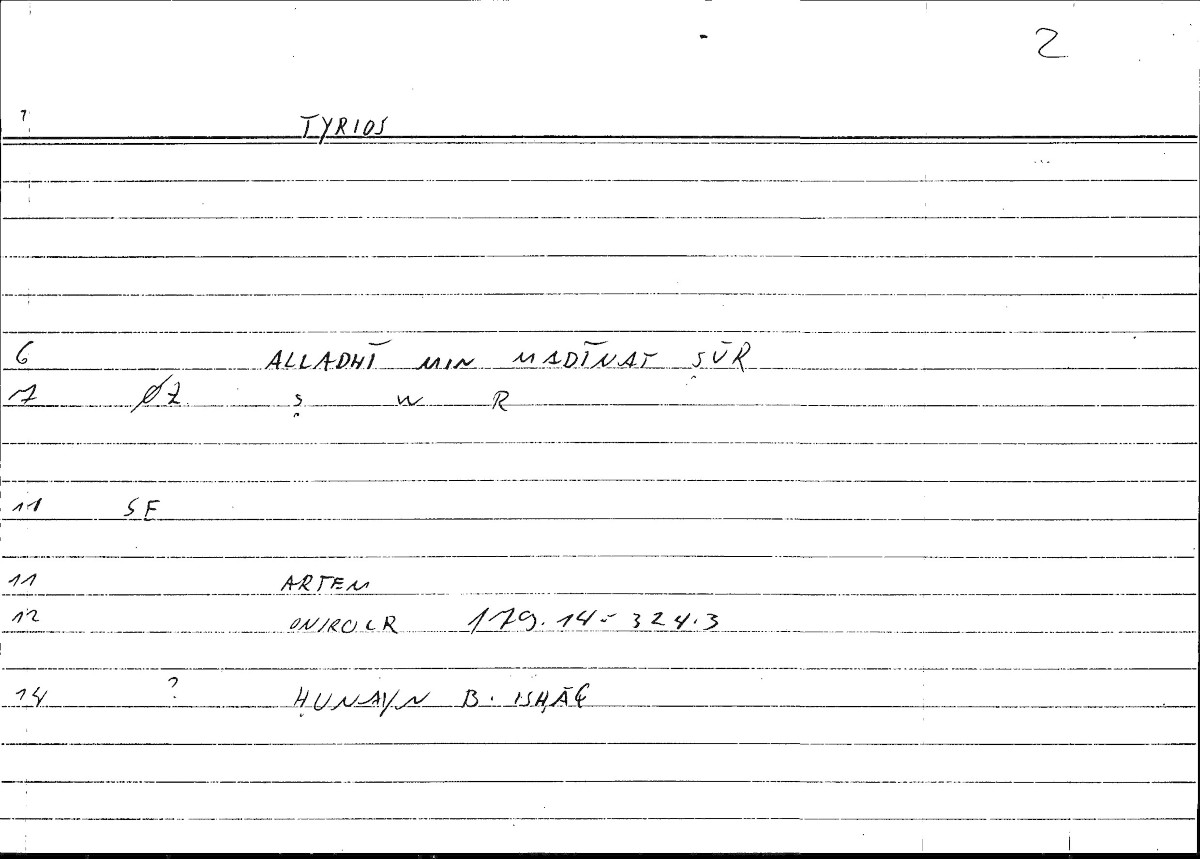 2
1 TYRIOS
6 ALLADHĪ MIN MADĪNAT ṢŪR
7 ØZ ṣ W R
11 SF
11 ARTEM
12 ONIROCR 179.14 = 324.3
14 ? ḤUNAYN B. ISḤĀQ